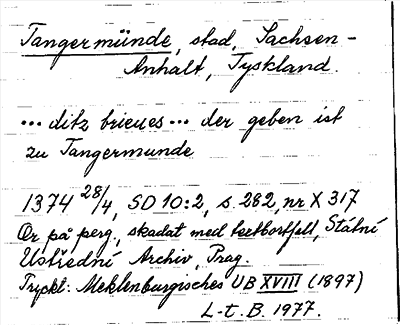 Tangermünde, stad, Sachsen-
Anhalt, Tyskland.
... ditz brieues ... der geben ist
zu Tangermunde
1374 28/4, SD 10:2, s. 282, nr X 317
Or på perg., skadat med textbortfall, Státní
Ustřední Archiv, Prag.
Tryckt: Meklenburgisches UB XVIII (1897)
L-t. B. 1977.